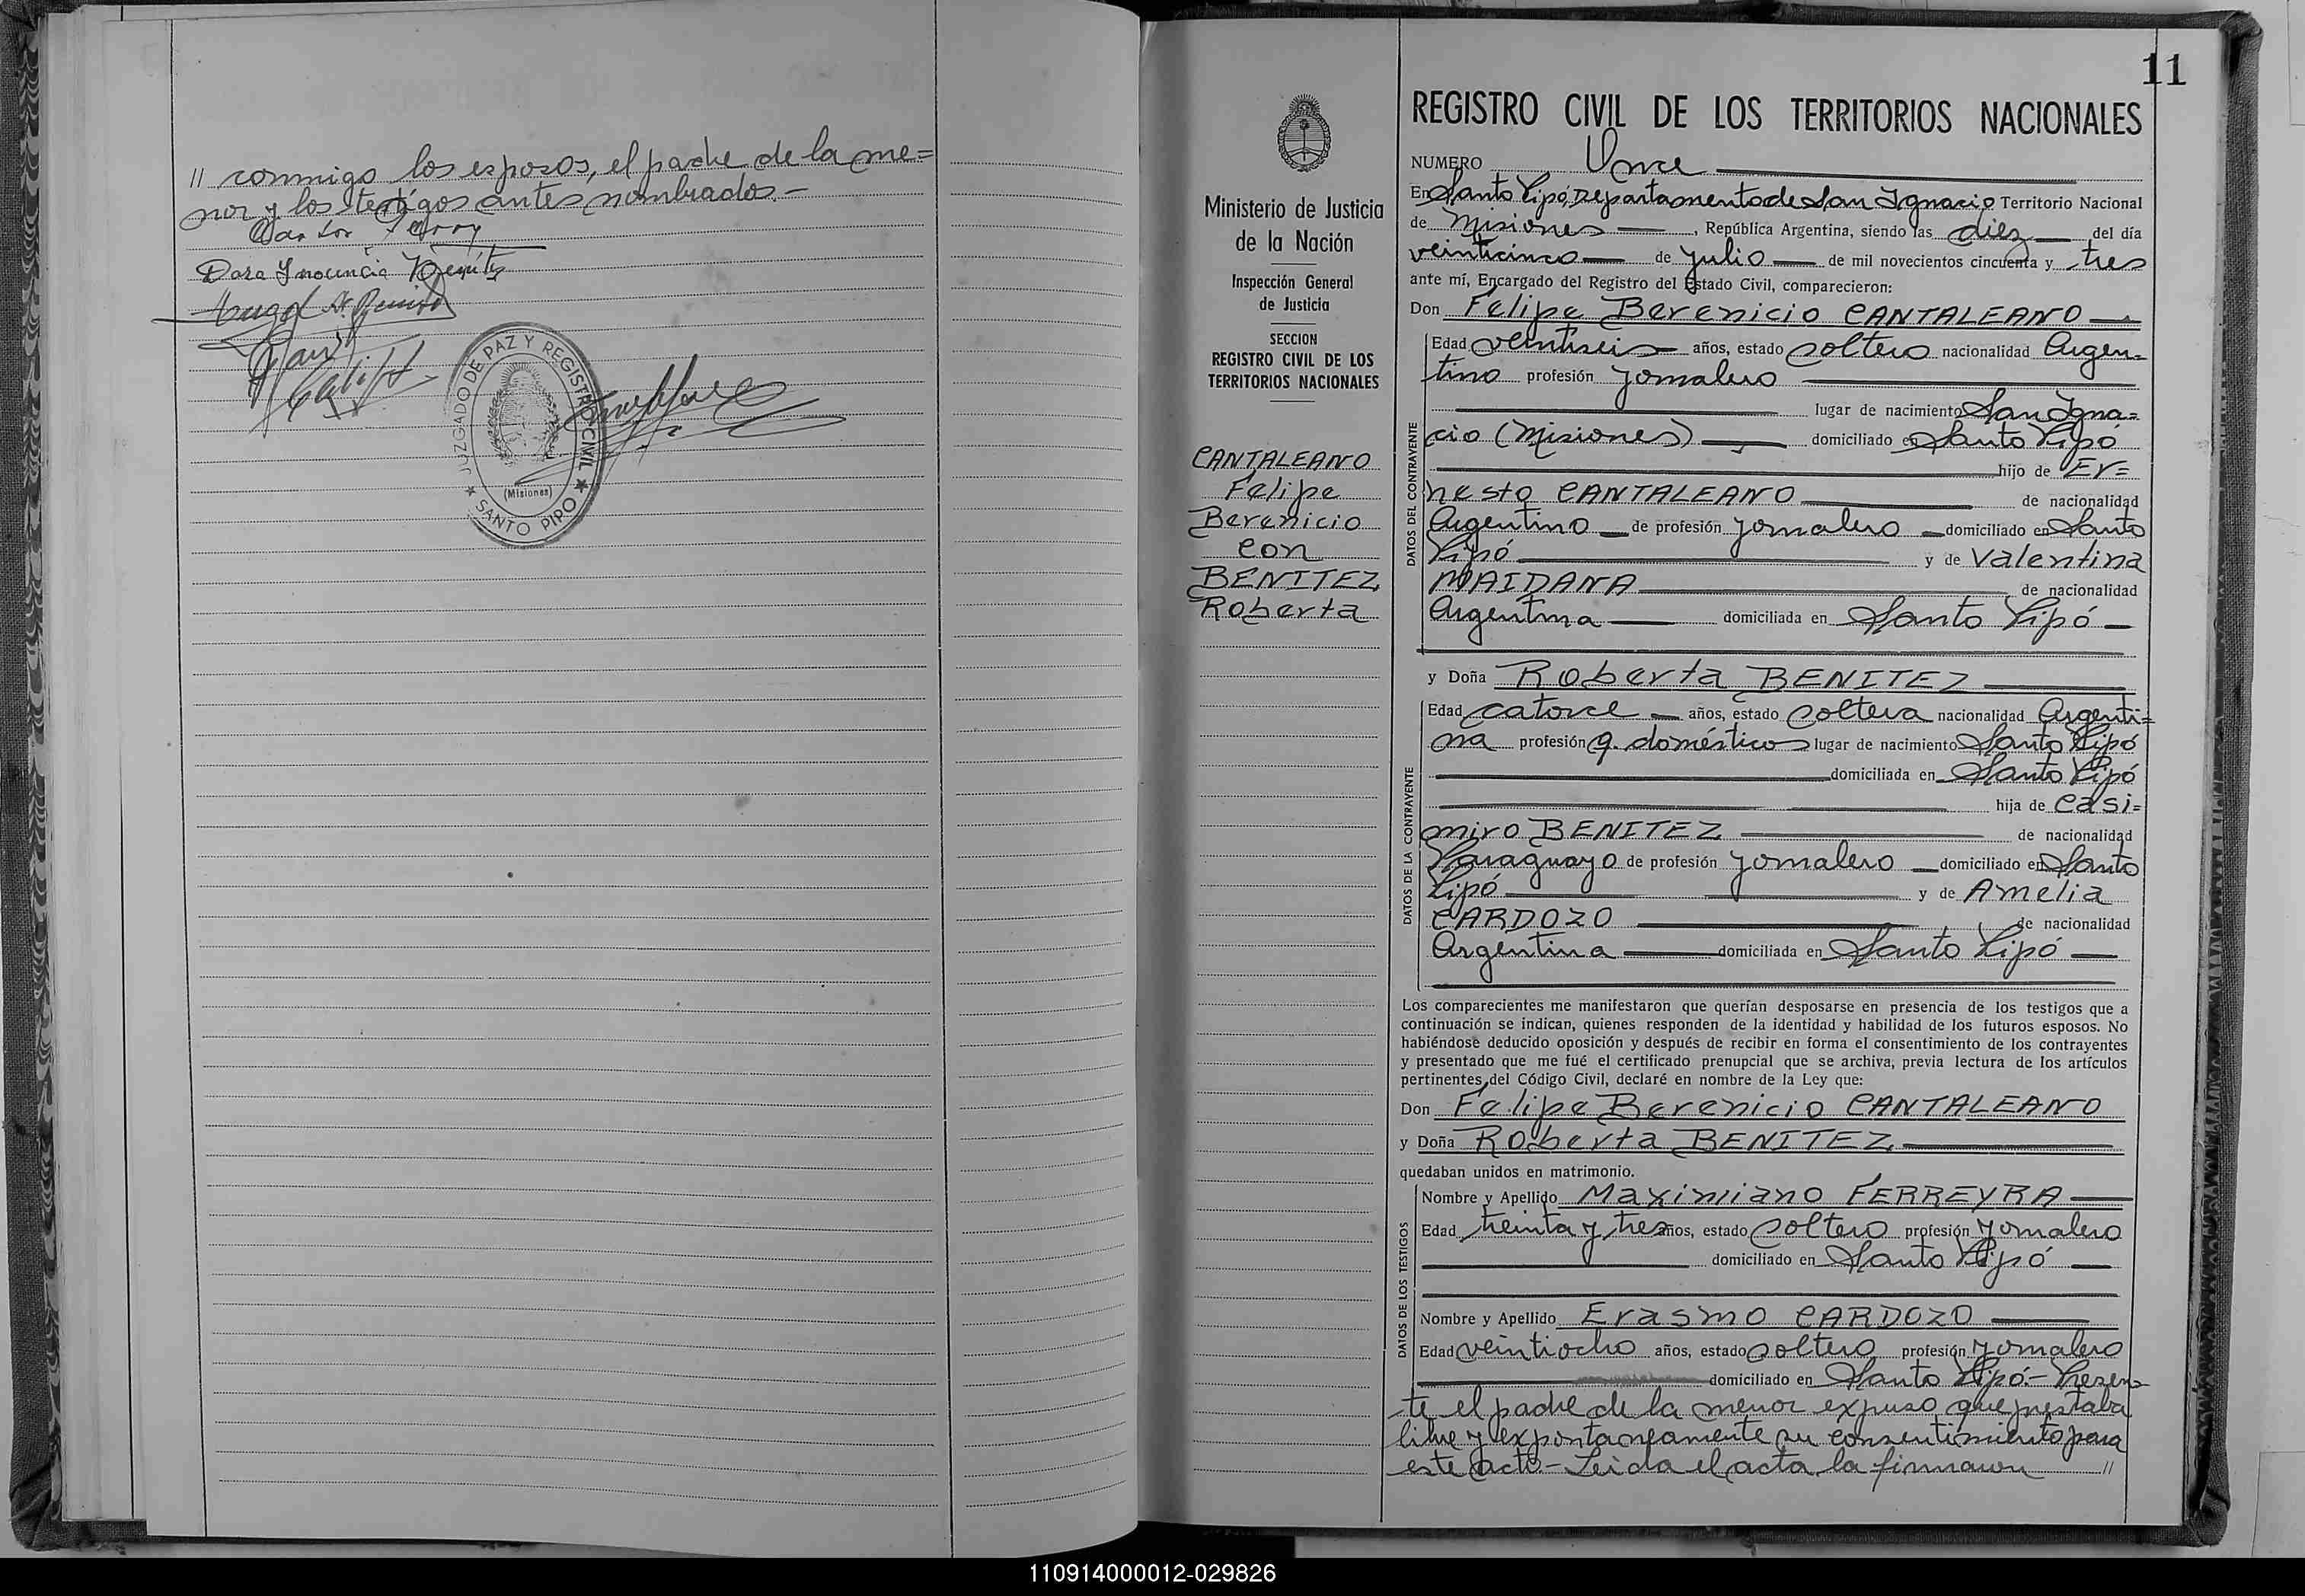 // conmigo los esposos, el padre de la me=
nor y los testigos antes nombrados.-
Dora Inocencia Benítez
Hugo A. Benitez
JUZGADO DE PAZ Y REGISTRO CIVIL
(Misiones)
★ SANTO PIPO ★
11
REGISTRO CIVIL DE LOS TERRITORIOS NACIONALES
Ministerio de Justicia
de la Nación
Inspección General
de Justicia
SECCION
REGISTRO CIVIL DE LOS
TERRITORIOS NACIONALES
CANTALEANO
Felipe
Berenicio
con
BENITEZ
Roberta
NUMERO Once
En Santo Pipó, Departamento de San Ignacio Territorio Nacional
de Misiones, República Argentina, siendo las diez del día
veinticinco de julio de mil novecientos cincuenta y tres
ante mí, Encargado del Registro del Estado Civil, comparecieron:
Don Felipe Berenicio CANTALEANO
DATOS DEL CONTRAYENTE
Edad veintiseis años, estado soltero nacionalidad Argen=
tino profesión jornalero
lugar de nacimiento San Igna=
cio (Misiones) domiciliado en Santo Pipó
hijo de Er=
nesto CANTALEANO de nacionalidad
Argentino de profesión jornalero domiciliado en Santo
Pipó y de Valentina
MAIDANA de nacionalidad
Argentina domiciliada en Santo Pipó
y Doña Roberta BENITEZ
DATOS DE LA CONTRAYENTE
Edad catorce años, estado soltera nacionalidad Argenti=
na profesión q. domésticos lugar de nacimiento Santo Pipó
domiciliada en Santo Pipó
hija de Casi=
miro BENITEZ de nacionalidad
Paraguayo de profesión jornalero domiciliado en Santo
Pipó y de Amelia
CARDOZO de nacionalidad
Argentina domiciliada en Santo Pipó
Los comparecientes me manifestaron que querían desposarse en presencia de los testigos que a
continuación se indican, quienes responden de la identidad y habilidad de los futuros esposos. No
habiéndose deducido oposición y después de recibir en forma el consentimiento de los contrayentes
y presentado que me fué el certificado prenupcial que se archiva, previa lectura de los artículos
pertinentes del Código Civil, declaré en nombre de la Ley que:
Don Felipe Berenicio CANTALEANO
y Doña Roberta BENITEZ
quedaban unidos en matrimonio.
DATOS DE LOS TESTIGOS
Nombre y Apellido Maximiano FERREYRA
Edad treinta y tres años, estado soltero profesión jornalero
domiciliado en Santo Pipó
Nombre y Apellido Erasmo CARDOZO
Edad veintiocho años, estado soltero profesión jornalero
domiciliado en Santo Pipó.- Presen=
te el padre de la menor expuso que prestaba
libre y expontaneamente su consentimiento para
este acto.- Leida el acta la firmaron //
110914000012-029826